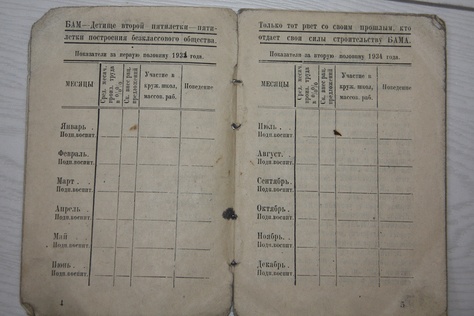 БАМ—Детище второй пятилетки—пяти-
летки построения бесклассового общества.
Показатели за первую половину 1934 года.
МЕСЯЦЫ
Участие в
круж. школ,
массов. раб.
Поведение
Январь
Подп.воспит.
Февраль
Подп.воспит.
Март
Подп.воспит.
Апрель
Подп.воспит.
Май
Подп.воспит.
Июнь
Подп.воспит.
4
Только тот рвет со своим прошлым, кто
отдает свои силы строительству БАМА.
Показатели за вторую половину 1934 года.
МЕСЯЦЫ
Участие в
круж. школ,
массов. раб.
Поведение
Июль
Подп.воспит.
Август
Подп.воспит.
Сентябрь
Подп.воспит.
Октябрь
Подп.воспит.
Ноябрь
Подп.воспит.
Декабрь
Подп.воспит.
5